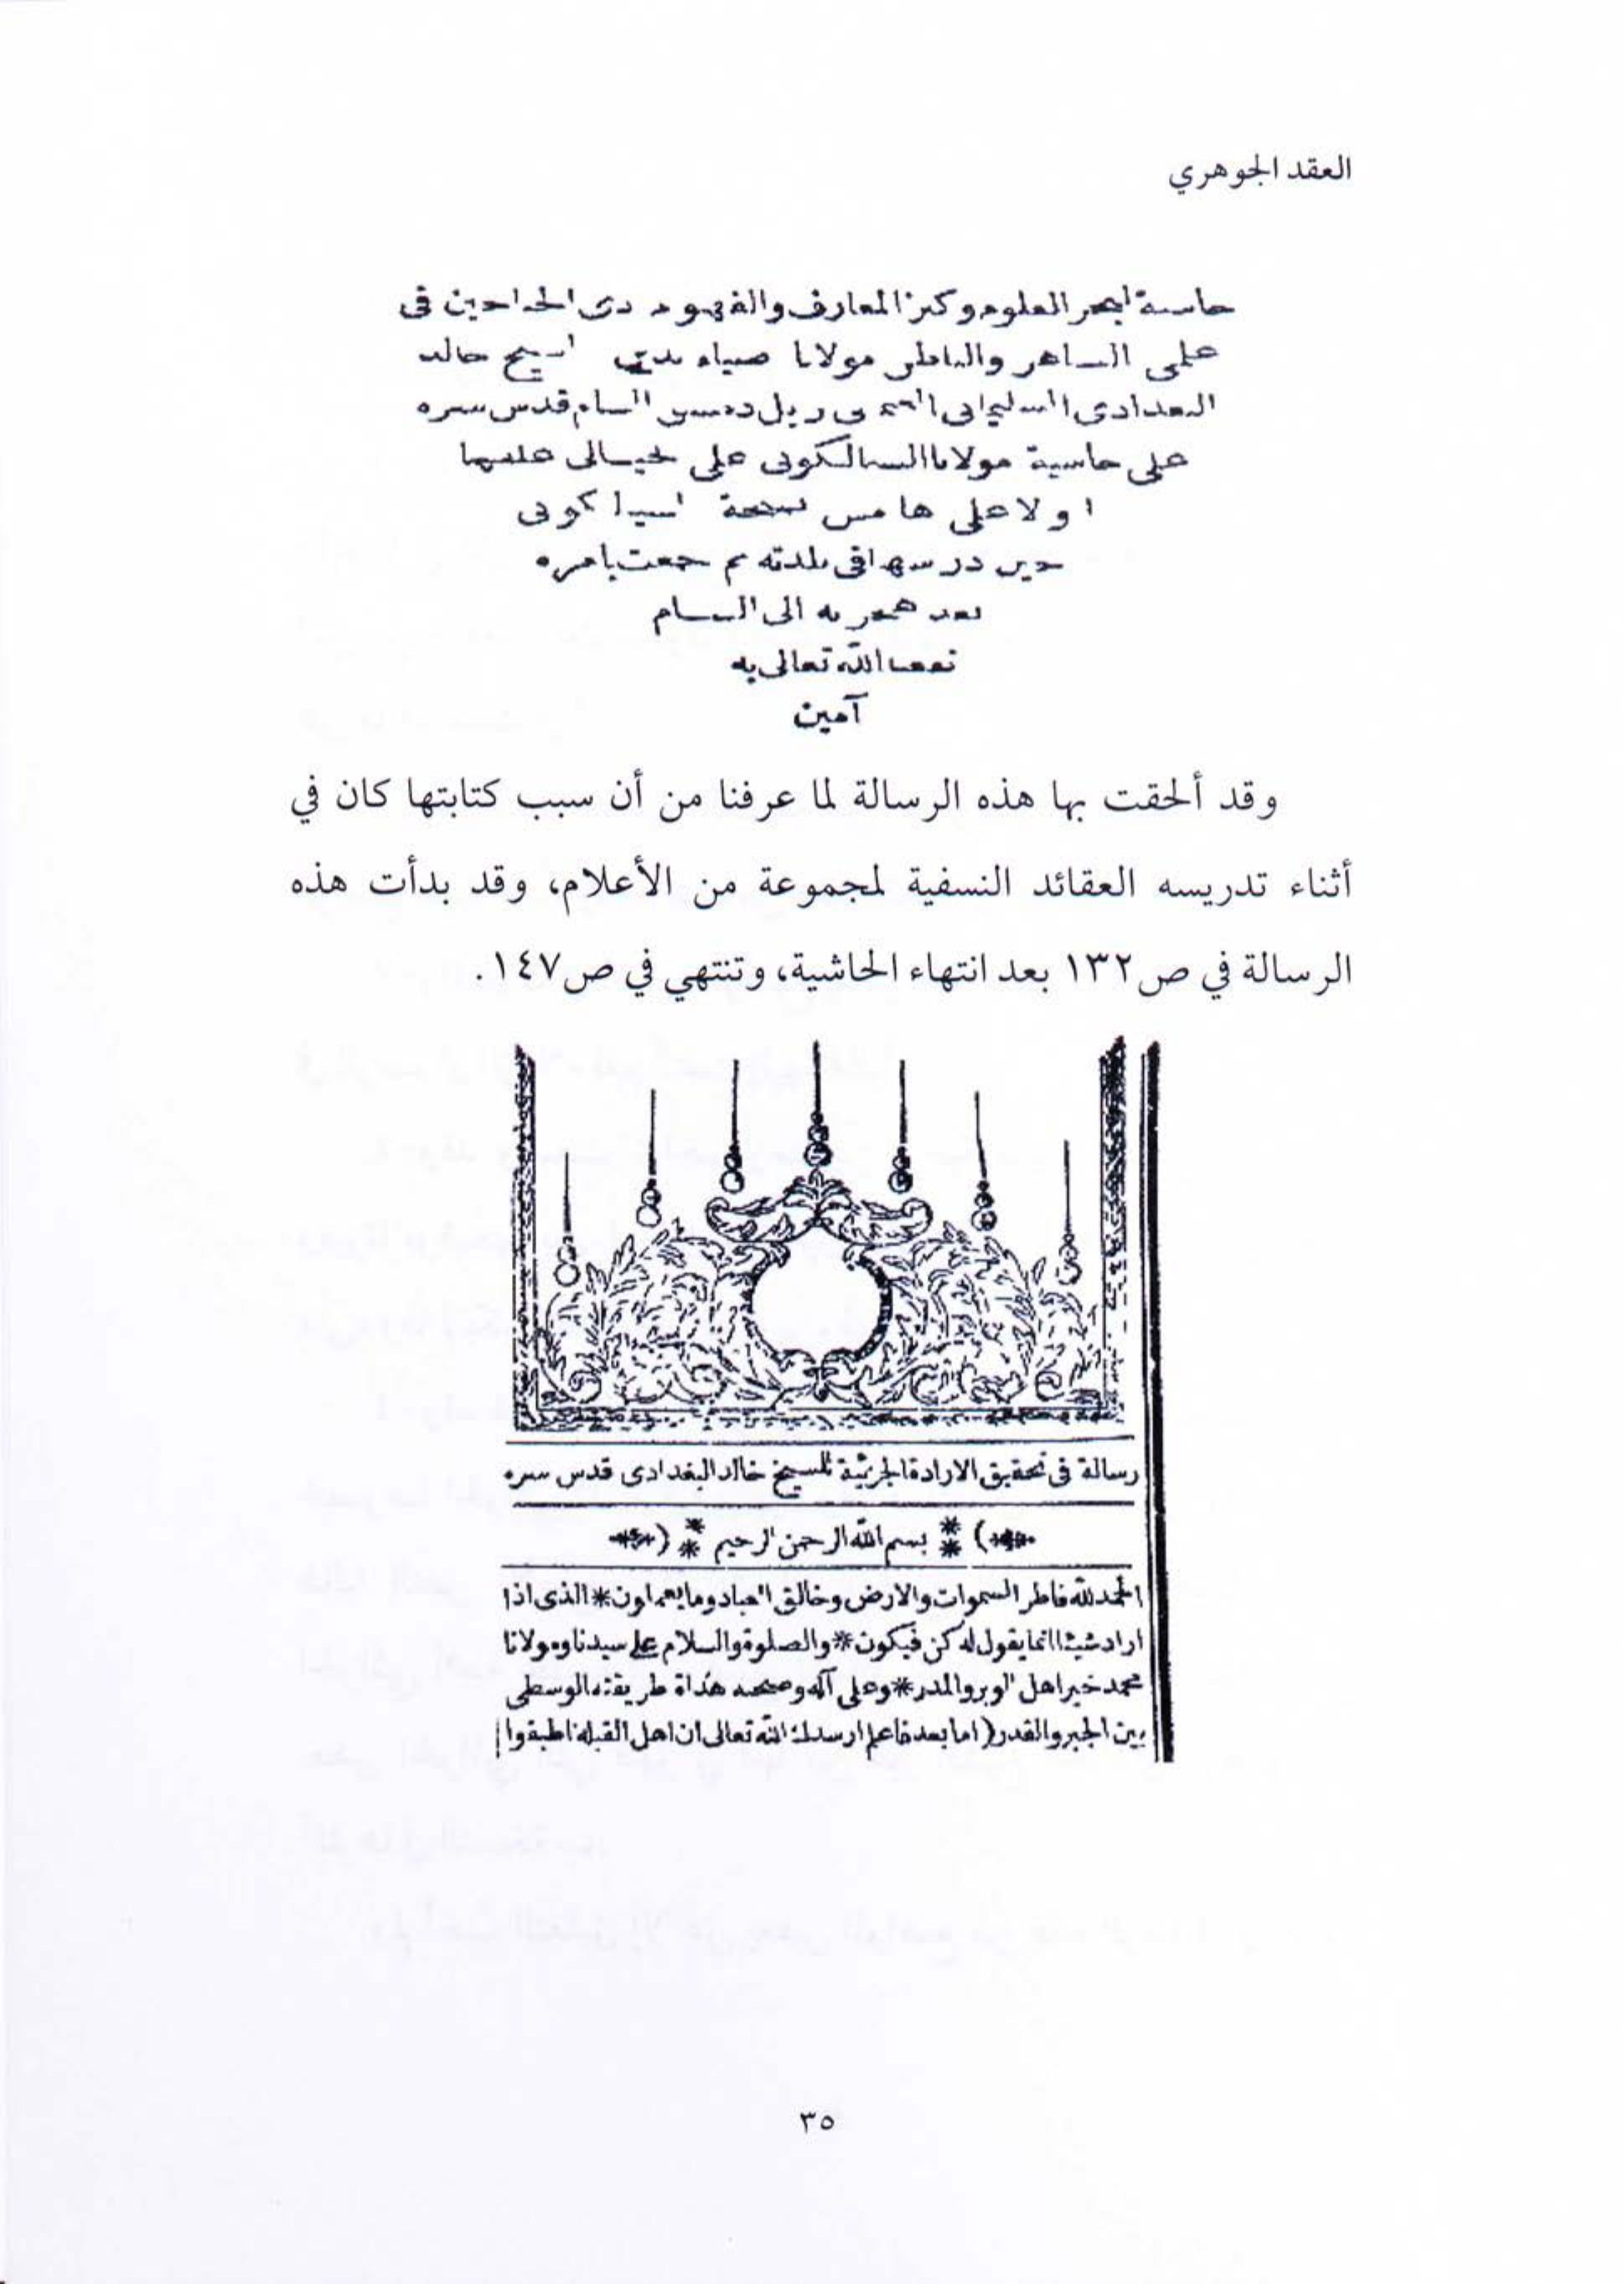 العقد الجوهري
العلوم وكنز المعارف والفهوم ذى الجناحين فى
علمى والباطن مولانا ضياء الشيخ خالد
البغدادى السليمانى دمشق الشام قدس سره
على حاشية مولانا السيالكوتى على الخيالى علقها
اولا على هامش نسخة السيالكوتى
حين درسها فى بلدته ثم جمعت بامره
بعد هجرته الى الشام
نفعنا الله تعالى به
آمين
وقد ألحقت بها هذه الرسالة لما عرفنا من أن سبب كتابتها كان في
أثناء تدريسه العقائد النسفية لمجموعة من الأعلام، وقد بدأت هذه
الرسالة في ص١٣٢ بعد انتهاء الحاشية، وتنتهي في ص١٤٧.
رسالة فى تحقيق الارادة الجزئية للشيخ خالد البغدادى قدس سره
بسم الله الرحمن الرحيم
الحمد لله فاطر السموات والارض وخالق العباد وما يعملون * الذى اذا
اراد شيئا انما يقول له كن فيكون * والصلوة والسلام على سيدنا ومولانا
محمد خير اهل الوبر والمدر * وعلى آله وصحبه هداة طريقته الوسطى
بين الجبر والقدر (اما بعد فاعلم ارشدك الله تعالى ان اهل القبلة اطبقوا
٣٥